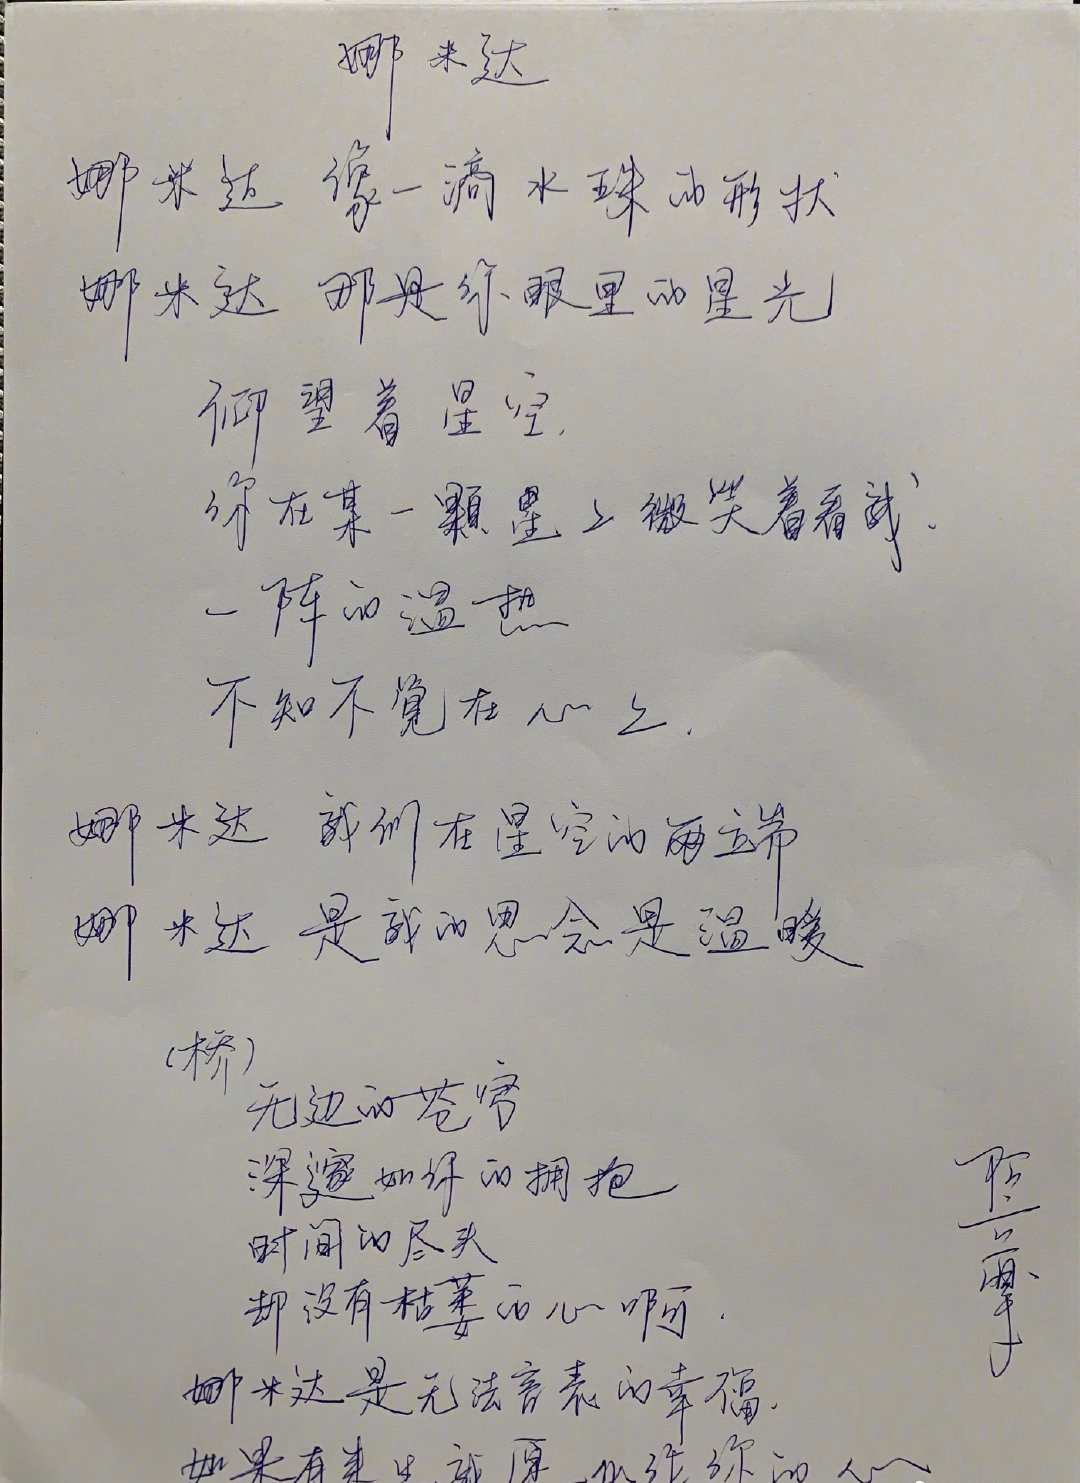 娜米达
娜米达 像一滴水珠的形状
娜米达 那是你眼里的星光
仰望着星空.
你在某一颗星上微笑着看我.
一阵的温热
不知不觉在心上.
娜米达 我们在星空的两端
娜米达 是我的思念是温暖
(桥)
无边的苍穹
深邃如你的拥抱
时间的尽头
却没有枯萎的心啊.
娜米达是无法言表的幸福.
如果有来生就原 你的心